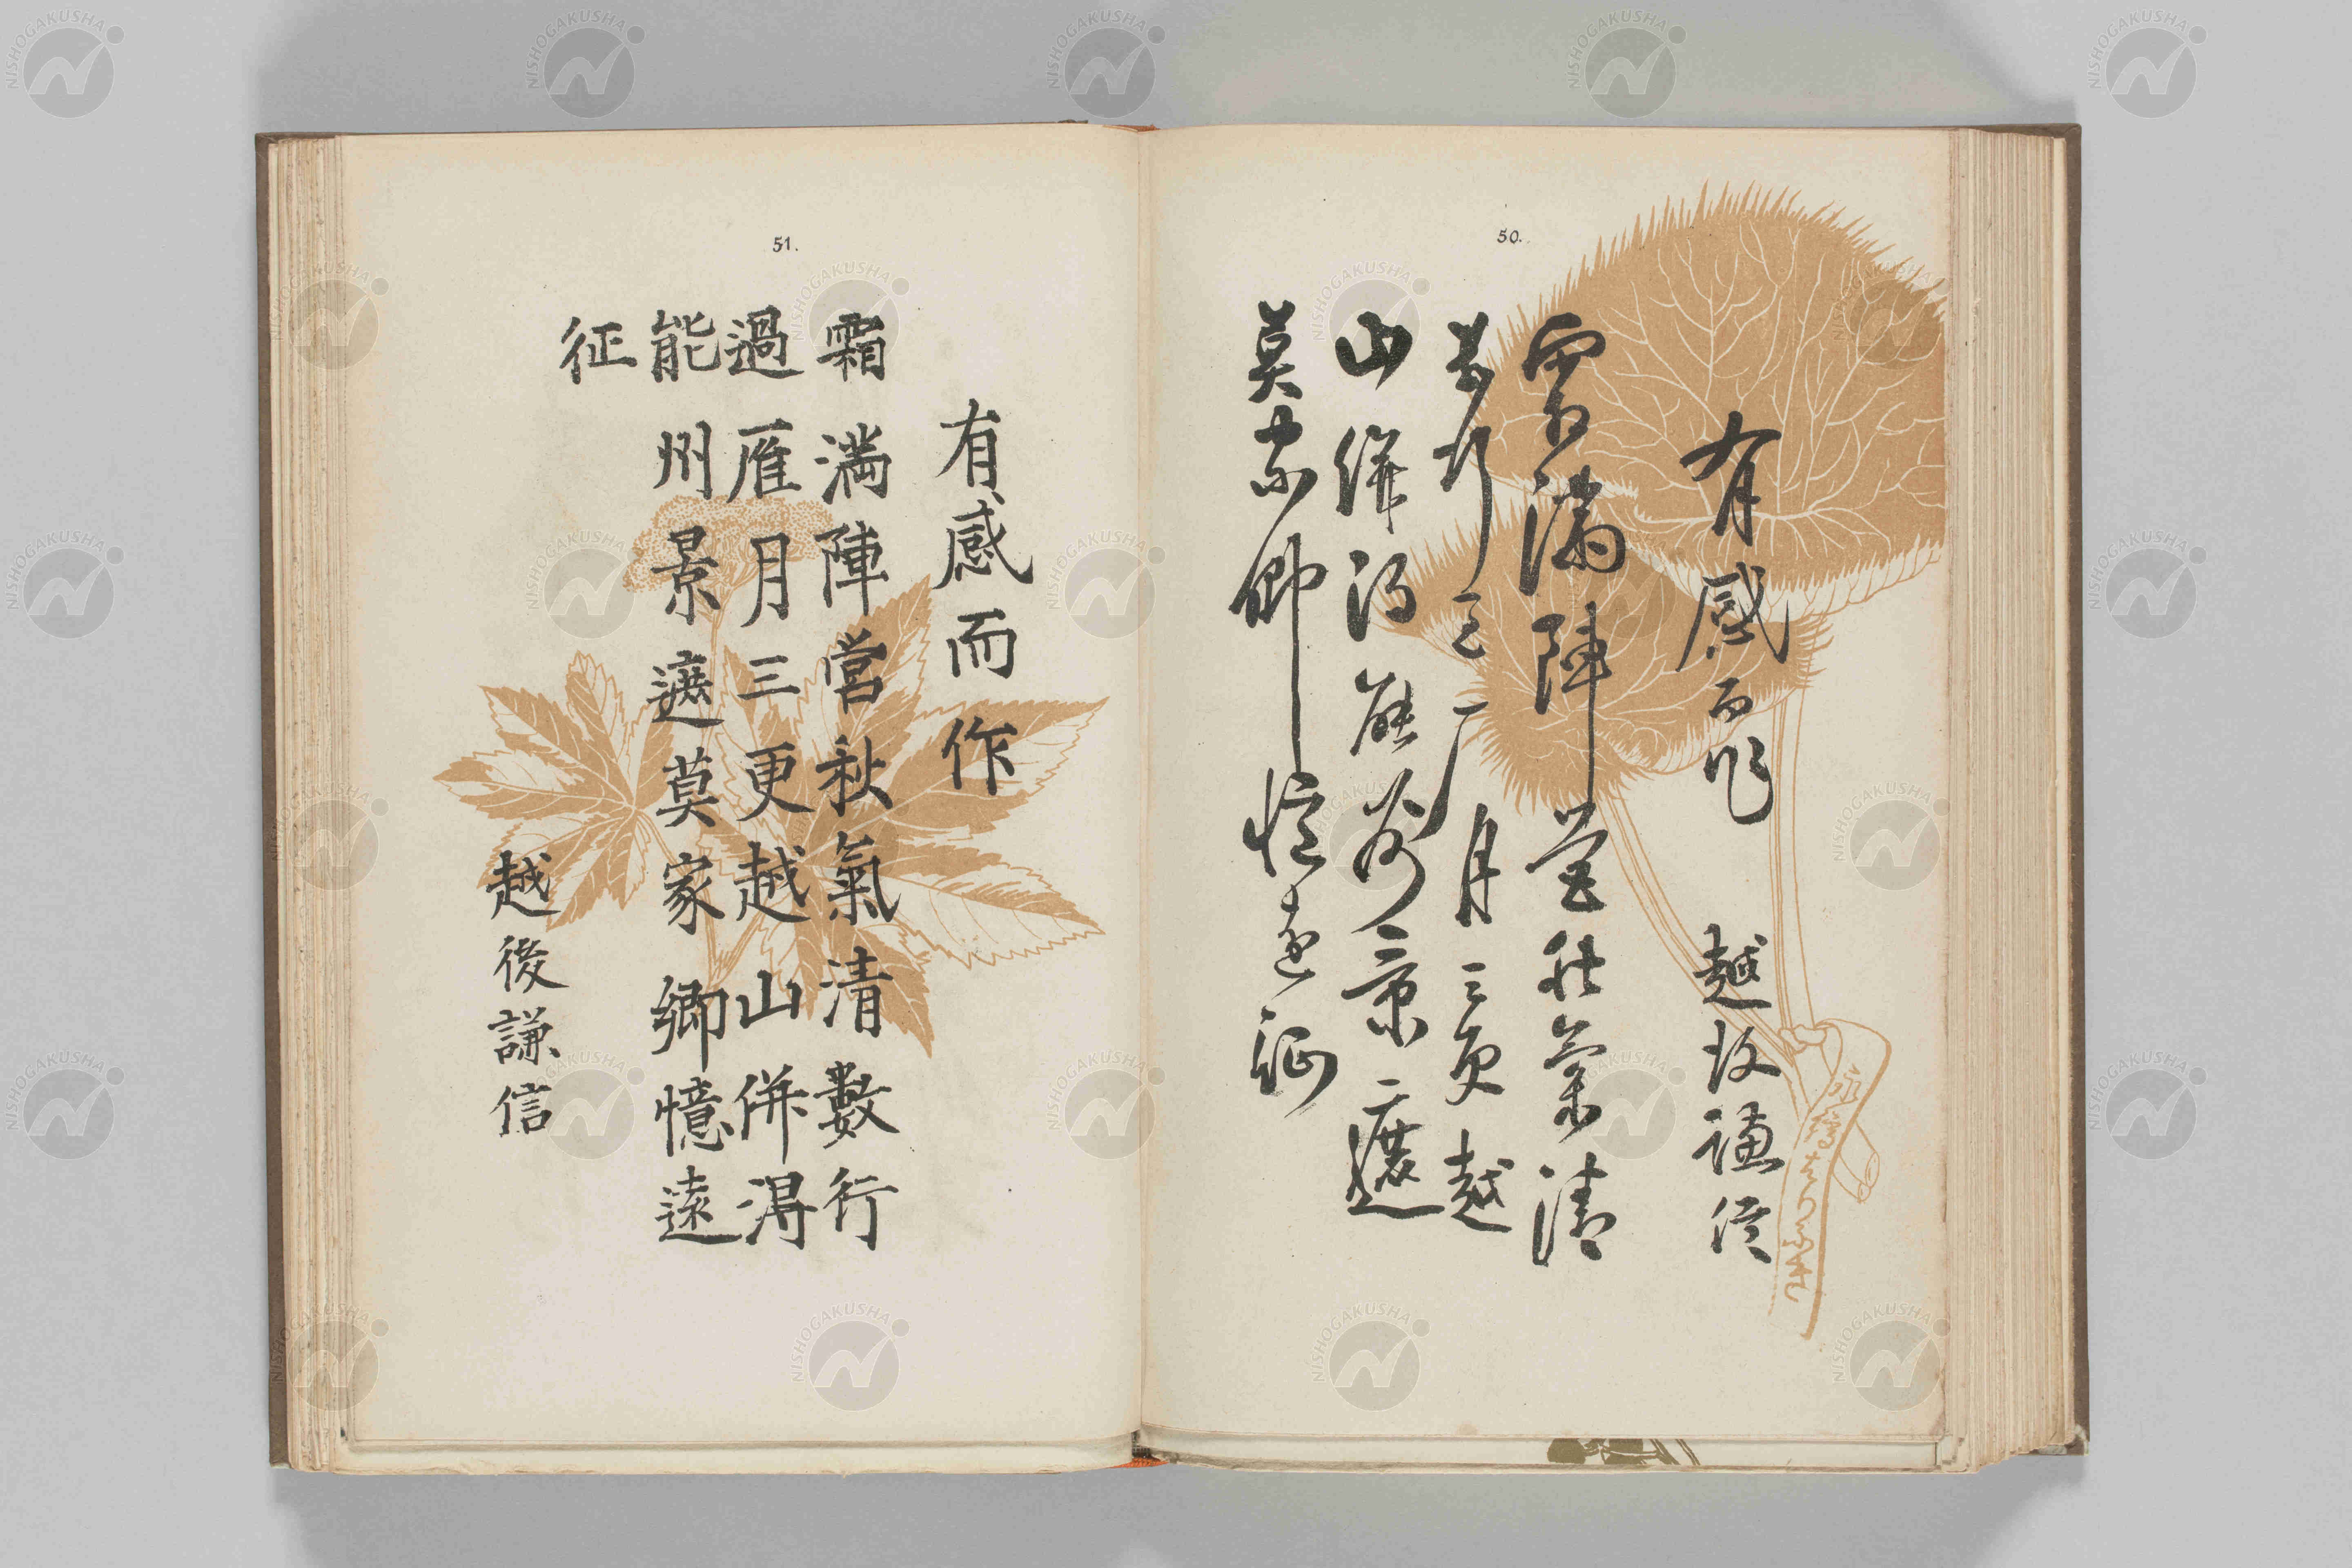 50.
有感而作 越後謙信
霜満陣営秋氣清
數行過雁月三更越
山併得能州景遮
莫家郷憶遠征
51.
有感而作
霜満陣営秋氣清數行
過雁月三更越山併淂
能州景遮莫家郷憶遠
征
越後謙信
NISHOGAKUSHA